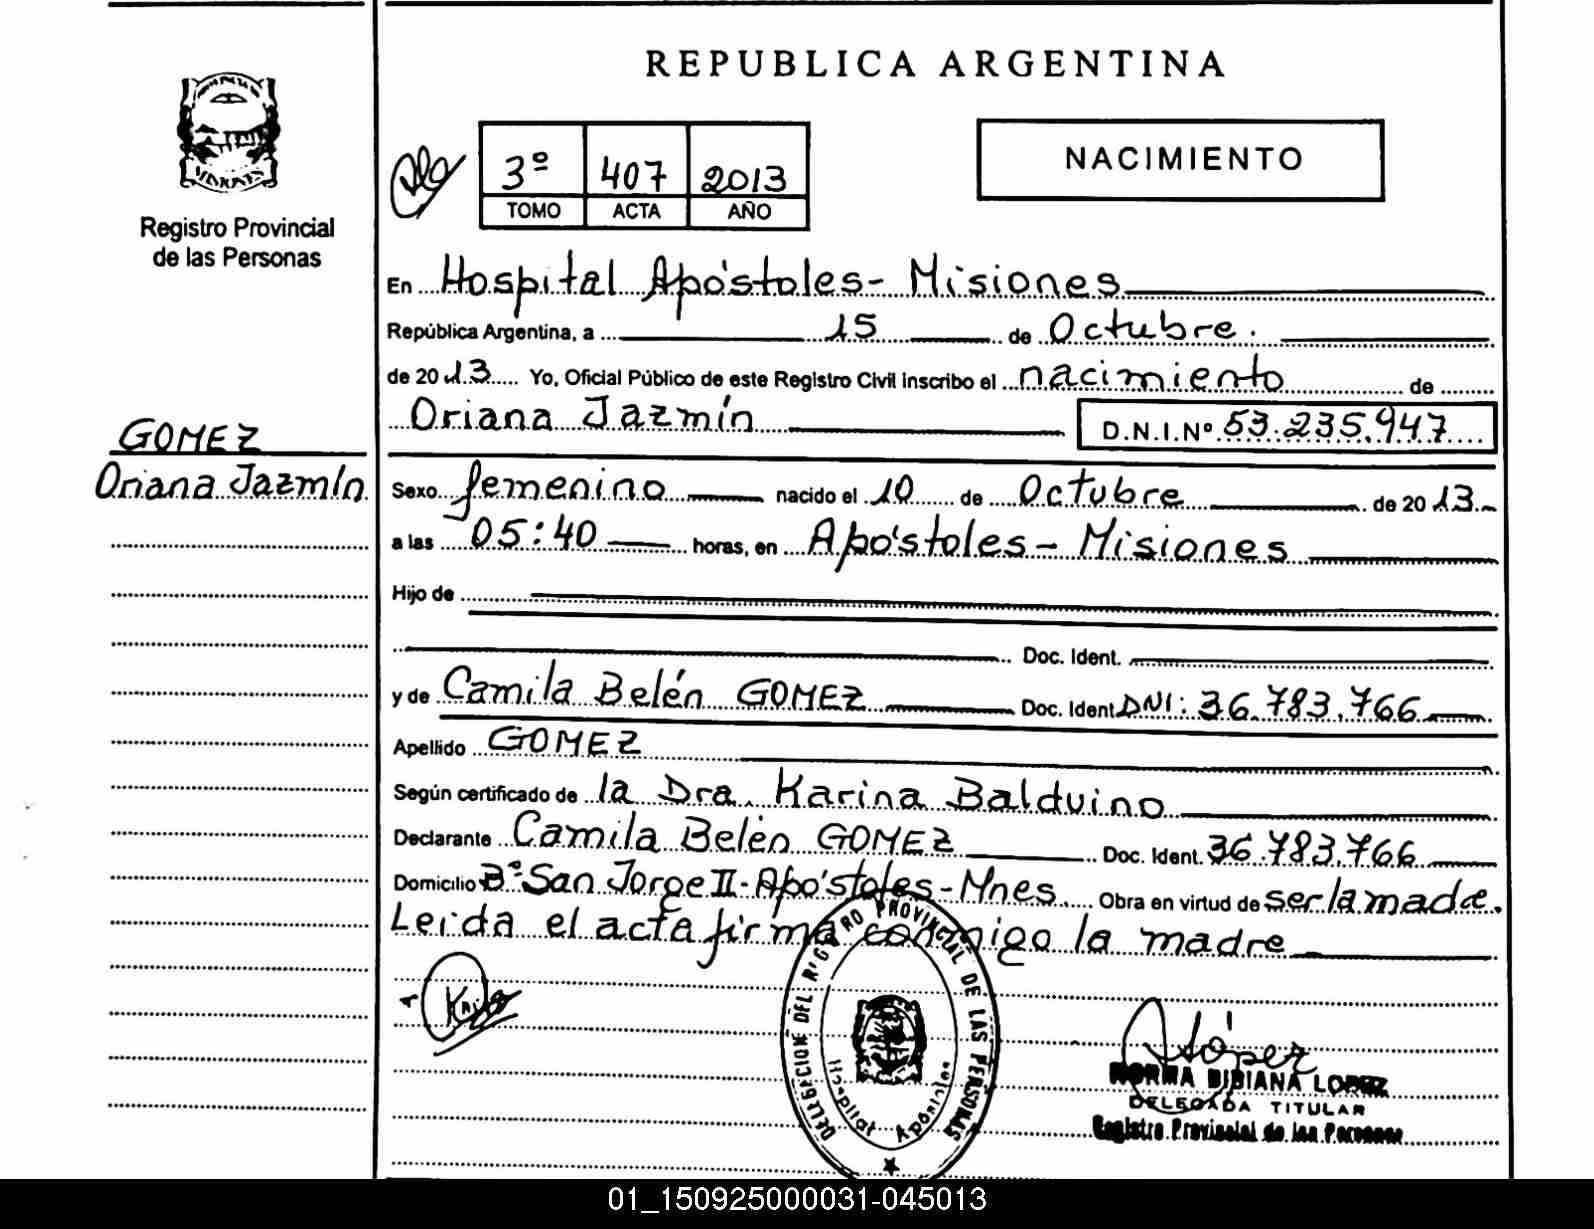 REPUBLICA ARGENTINA
MISIONES
Registro Provincial
de las Personas
3º 407 2013
TOMO ACTA AÑO
NACIMIENTO
En Hospital Apóstoles - Misiones
República Argentina, a 15 de Octubre.
de 2013 Yo, Oficial Público de este Registro Civil inscribo el nacimiento de
Oriana Jazmín D.N.I.Nº 53.235.947
GOMEZ
Oriana Jazmín
Sexo femenino nacido el 10 de Octubre de 2013.
a las 05:40 horas, en Apóstoles - Misiones
Hijo de
Doc. Ident.
y de Camila Belén GOMEZ Doc. Ident DNI: 36.783.766
Apellido GOMEZ
Según certificado de la Dra. Karina Balduino
Declarante Camila Belén GOMEZ Doc. Ident. 36.783.766
Domicilio Bº San Jorge II - Apóstoles - Mnes. Obra en virtud de ser la madre.
Leida el acta firma conmigo la madre
DELEGACION DEL REGISTRO PROVINCIAL DE LAS PERSONAS
Hospital Apóstoles
López
NORMA BIBIANA LOPEZ
DELEGADA TITULAR
Registro Provincial de las Personas
01_150925000031-045013